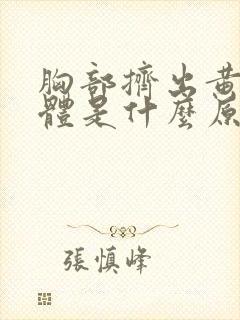 胸部擠出黃
體是什麼原
張慎峰